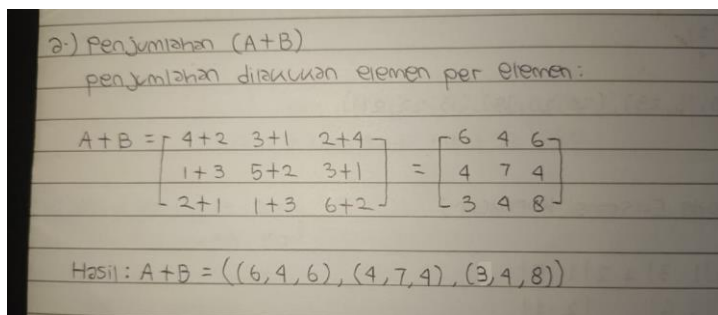 a.) Penjumlahan (A+B)
penjumlahan dilakukan elemen per elemen:
A+B = [ 4+2 3+1 2+4 ] [ 6 4 6 ]
[ 1+3 5+2 3+1 ] = [ 4 7 4 ]
[ 2+1 1+3 6+2 ] [ 3 4 8 ]
Hasil: A+B = ((6,4,6), (4,7,4), (3,4,8))